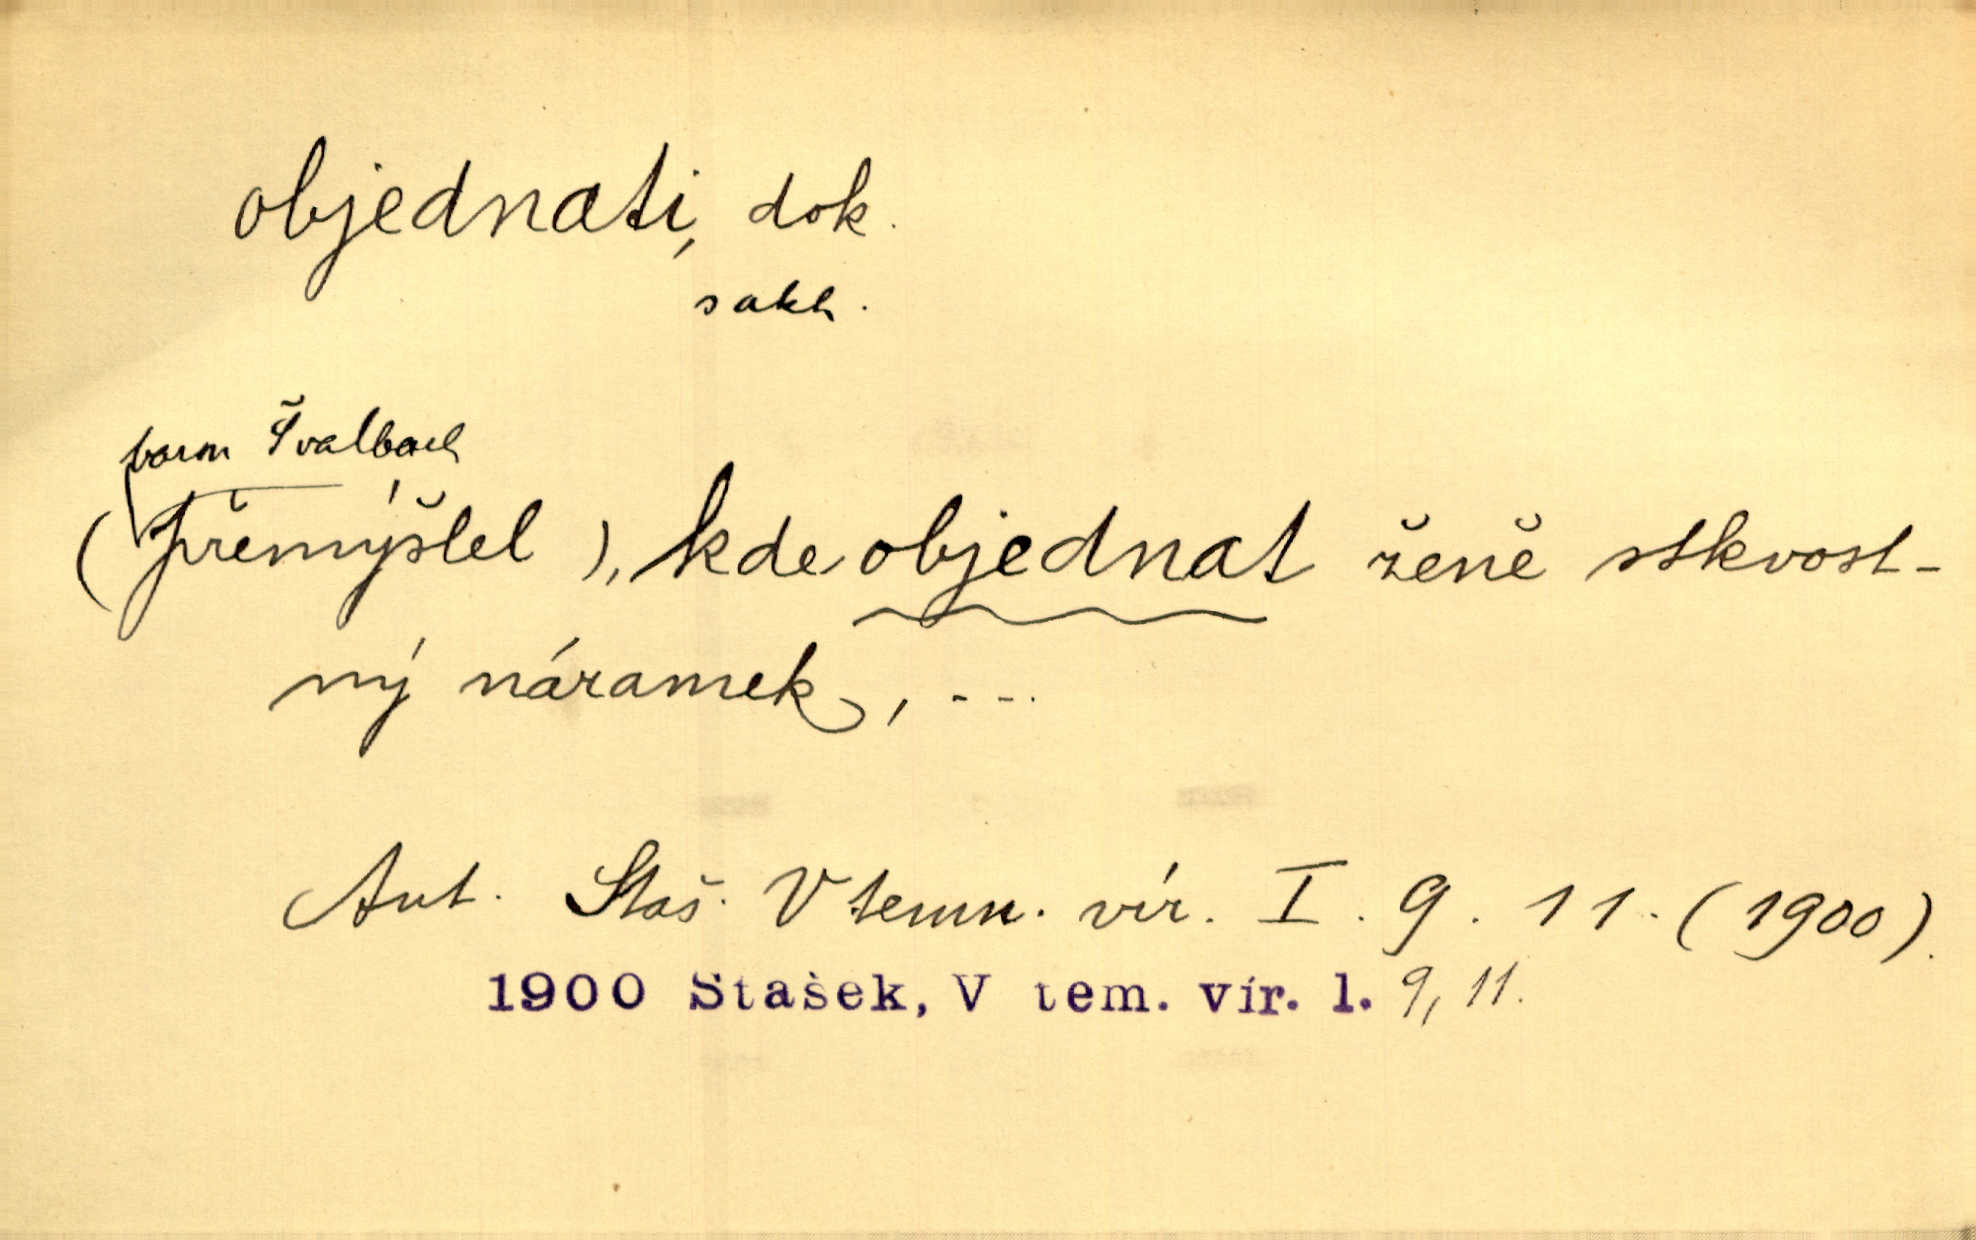 objednati, dok.
sakh.
baron Švalbach
(přemýšlel), kde objednat ženě stkvost-
ný náramek, ...
Ant. Staš. V temn. vír. I. 9. 11. (1900).
1900 Stašek, V tem. vír. 1. 9, 11.